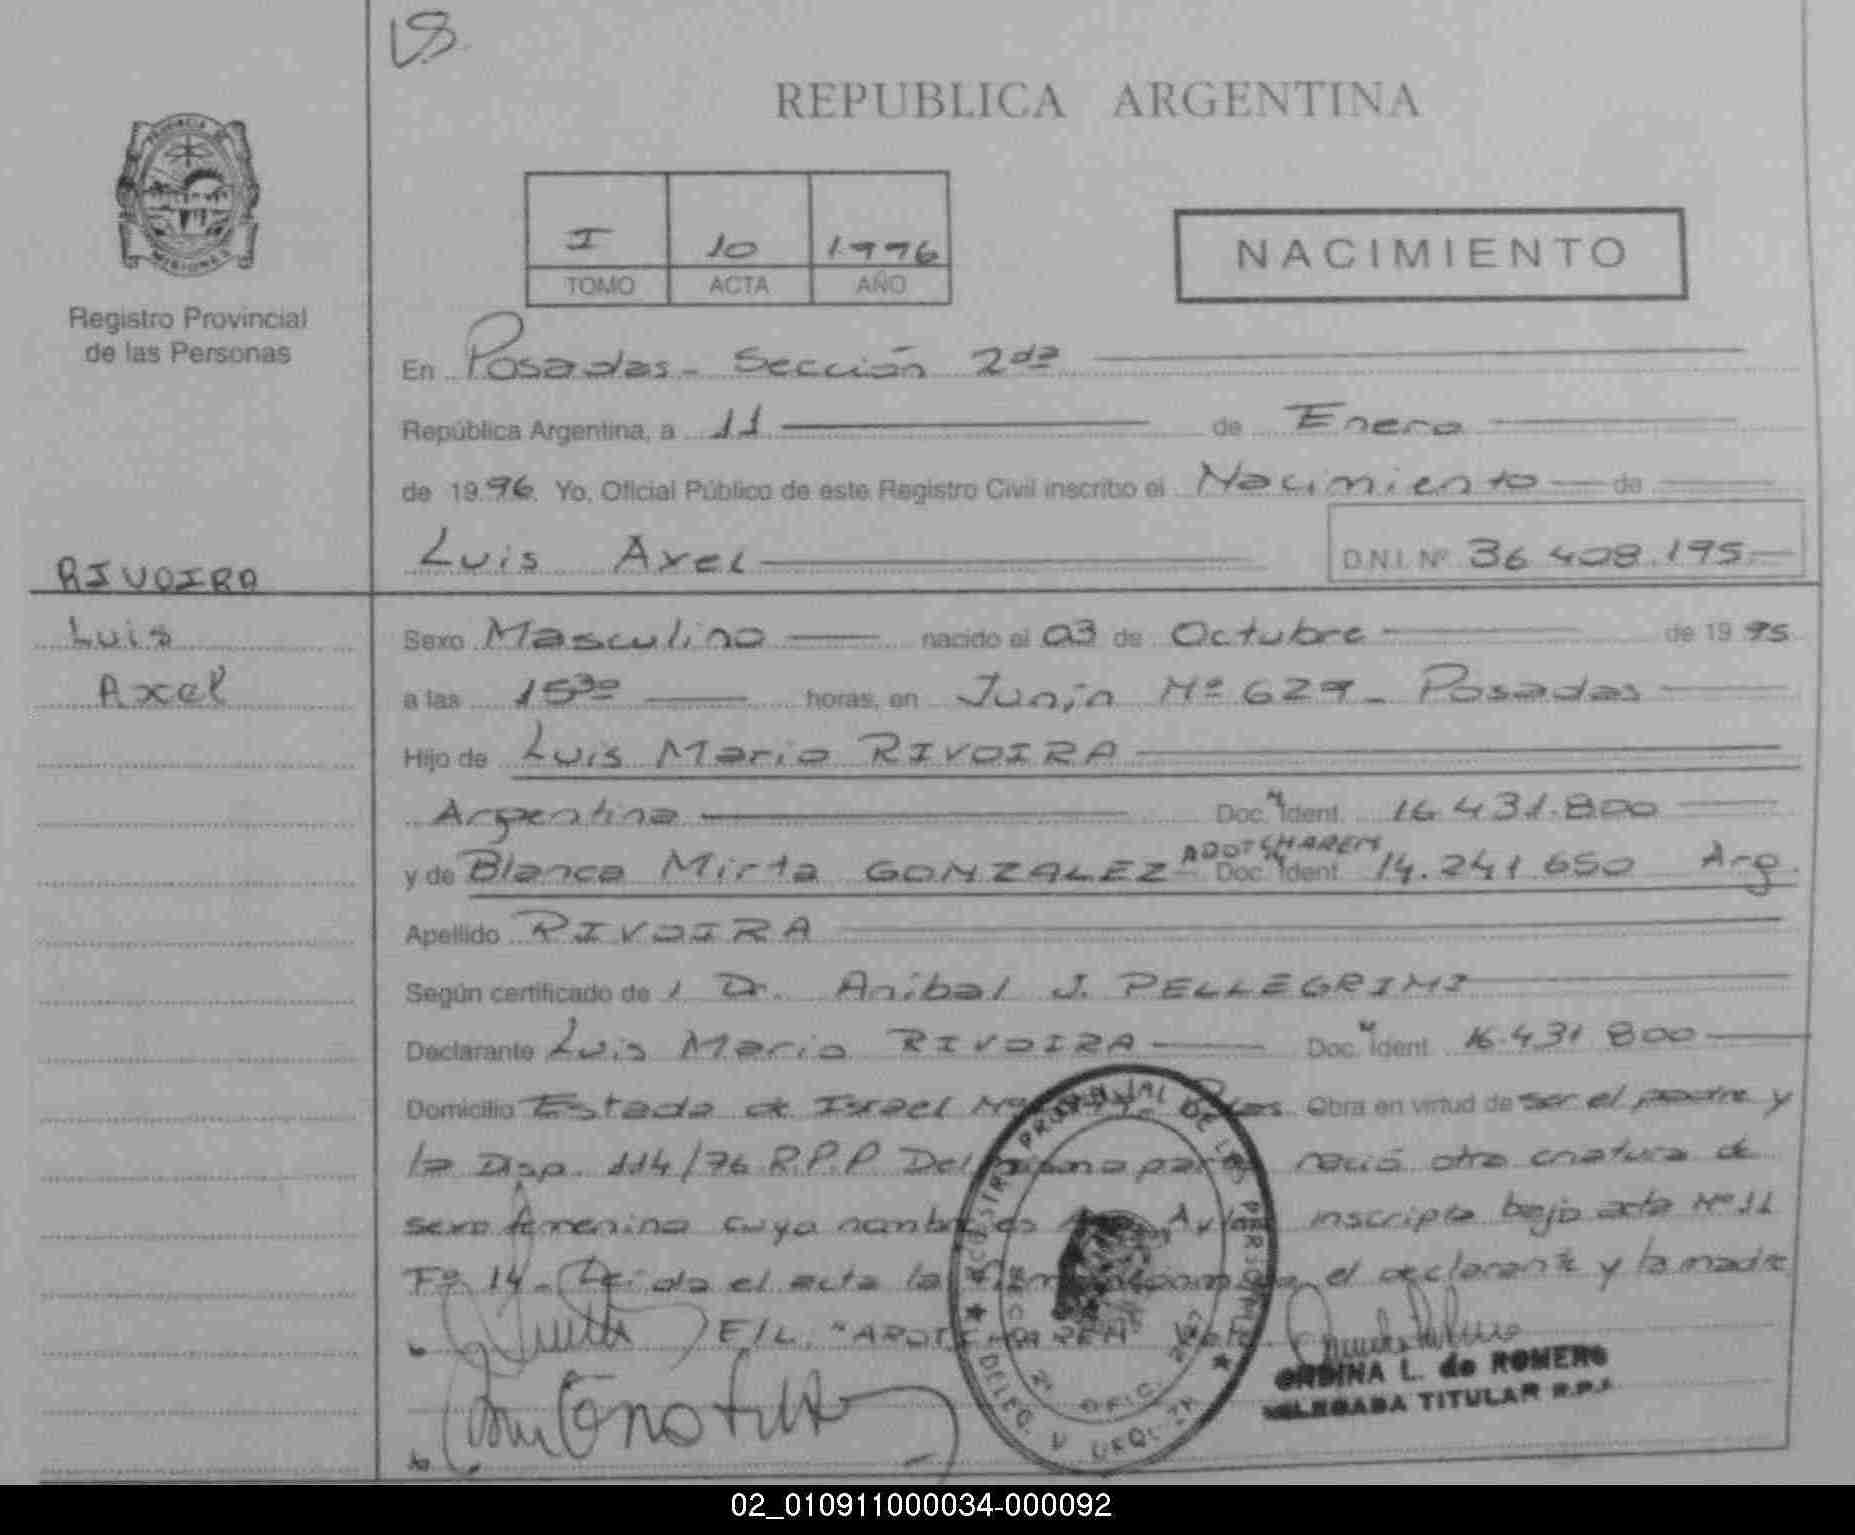 REPUBLICA ARGENTINA
PROVINCIA DE
MISIONES
Registro Provincial
de las Personas
I 10 1.996
TOMO ACTA AÑO
NACIMIENTO
En Posadas - Sección 2da
República Argentina, a 11 de Enero
de 1996. Yo, Oficial Público de este Registro Civil inscribo el Nacimiento de
Luis Axel D.N.I. Nº 36.408.195.
RIVOIRA
Luis
Axel
Sexo Masculino nacido el 03 de Octubre de 1995
a las 15 30 horas, en Junín Nº 629 - Posadas
Hijo de Luis Mario RIVOIRA
Argentina Doc. Ident. 16.431.800
y de Blanca Mirta GONZALEZ Doc. Ident. 14.241.650 Arg.
Apellido RIVOIRA
Según certificado de 1 Dr. Anibal J. PELLEGRINI
Declarante Luis Mario RIVOIRA Doc. Ident. 16.431.800
Domicilio Estado de Israel Nº Obra en virtud de ser el padre y
la Disp. 114/76 R.P.P. Del mismo parto nació otra criatura de
sexo femenino cuyo nombre es inscripta bajo acta Nº 11
Fº 14 - Leída el acta la firman el declarante y la madre
E/L.
ORDINA L. de ROMERO
DELEGADA TITULAR R.P.P.
02_010911000034-000092